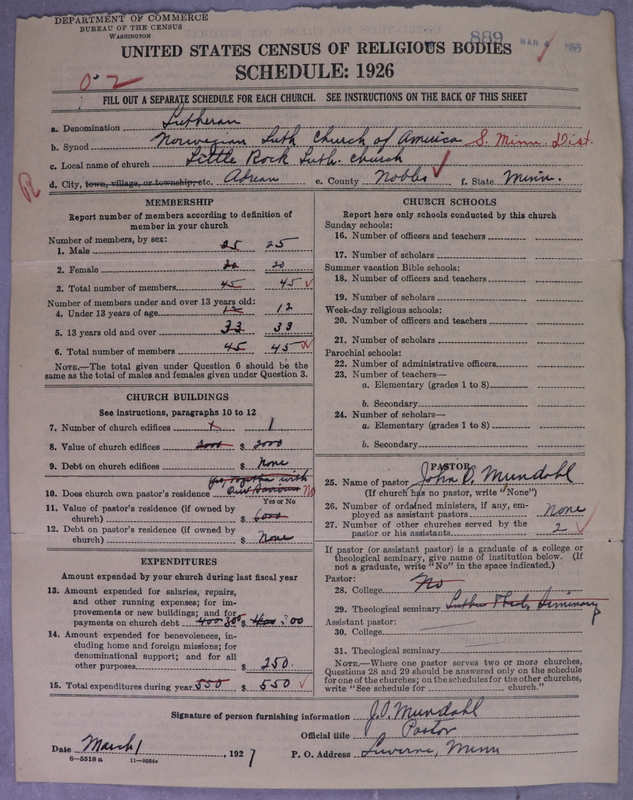 DEPARTMENT OF COMMERCE
BUREAU OF THE CENSUS
WASHINGTON
889 MAR
UNITED STATES CENSUS OF RELIGIOUS BODIES
SCHEDULE: 1926
FILL OUT A SEPARATE SCHEDULE FOR EACH CHURCH. SEE INSTRUCTIONS ON THE BACK OF THIS SHEET
a. Denomination Lutheran
b. Synod Norwegian Luth Church of America S. Minn. Dist.
c. Local name of church Little Rock Luth. church
d. City, town, village, or township, etc. Adrian e. County Nobles f. State Minn.
R
MEMBERSHIP
Report number of members according to definition of
member in your church
Number of members, by sex:
1. Male 25 25
2. Female 20 20
3. Total number of members 45 45
Number of members under and over 13 years old:
4. Under 13 years of age 12 12
5. 13 years old and over 33 33
6. Total number of members 45 45
NOTE.—The total given under Question 6 should be
the same as the total of males and females given under Question 3.
CHURCH BUILDINGS
See instructions, paragraphs 10 to 12
7. Number of church edifices 1 1
8. Value of church edifices 2000 $ 2000
9. Debt on church edifices $ None
yes, together with
10. Does church own pastor's residence No
Yes or No
11. Value of pastor's residence (if owned by
church) $ 6000
12. Debt on pastor's residence (if owned by
church) $ None
EXPENDITURES
Amount expended by your church during last fiscal year
13. Amount expended for salaries, repairs,
and other running expenses; for im-
provements or new buildings; and for
payments on church debt 300 $ 300
14. Amount expended for benevolences, in-
cluding home and foreign missions; for
denominational support; and for all
other purposes $ 250.
15. Total expenditures during year 550 $ 550
CHURCH SCHOOLS
Report here only schools conducted by this church
Sunday schools:
16. Number of officers and teachers
17. Number of scholars
Summer vacation Bible schools:
18. Number of officers and teachers
19. Number of scholars
Week-day religious schools:
20. Number of officers and teachers
21. Number of scholars
Parochial schools:
22. Number of administrative officers
23. Number of teachers—
a. Elementary (grades 1 to 8)
b. Secondary
24. Number of scholars—
a. Elementary (grades 1 to 8)
b. Secondary
PASTOR
25. Name of pastor John O. Mundahl
(If church has no pastor, write "None")
26. Number of ordained ministers, if any, em-
ployed as assistant pastors None
27. Number of other churches served by the
pastor or his assistants 2
If pastor (or assistant pastor) is a graduate of a college or
theological seminary, give name of institution below. (If
not a graduate, write "No" in the space indicated.)
Pastor:
28. College No
29. Theological seminary Luther Theol. Seminary
Assistant pastor:
30. College
31. Theological seminary
NOTE.—Where one pastor serves two or more churches,
Questions 28 and 29 should be answered only on the schedule
for one of the churches; on the schedules for the other churches,
write "See schedule for church."
Signature of person furnishing information J.O. Mundahl
Official title Pastor
Date March 1, 1927 P. O. Address Luverne, Minn
8—5518 a 11—9054a